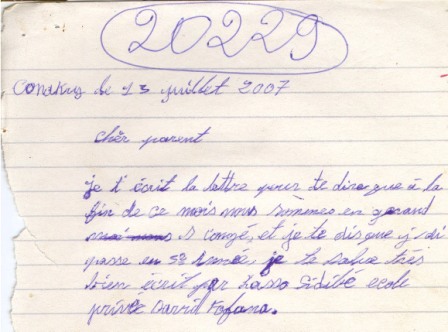 20229
Conakry le 13 juillet 2007
chèr parent
je t'écrit la lettre pour te dire que à la
fin de ce mois nous sommes en grand
s congé, et je te dis que j'ai
passe en 5e Année, je te salue très
bien écrit par Lasso Sidibé ecole
privée Fofana.